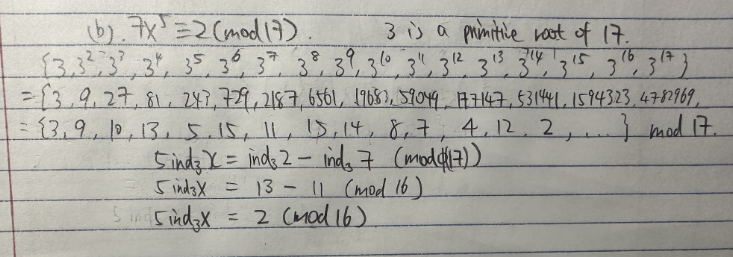 (b). 7x⁵ ≡ 2 (mod 17). 3 is a primitive root of 17.
{3, 3², 3³, 3⁴, 3⁵, 3⁶, 3⁷, 3⁸, 3⁹, 3¹⁰, 3¹¹, 3¹², 3¹³, 3¹⁴, 3¹⁵, 3¹⁶, 3¹⁷}
= {3, 9, 27, 81, 243, 729, 2187, 6561, 19683, 59049, 177147, 531441, 1594323, 4782969,
= {3, 9, 10, 13, 5, 15, 11, 15, 14, 8, 7, 4, 12, 2, ... } mod 17.
5 ind₃x = ind₃2 - ind₃7 (mod ϕ(17))
5 ind₃x = 13 - 11 (mod 16)
5 ind₃x = 2 (mod 16)